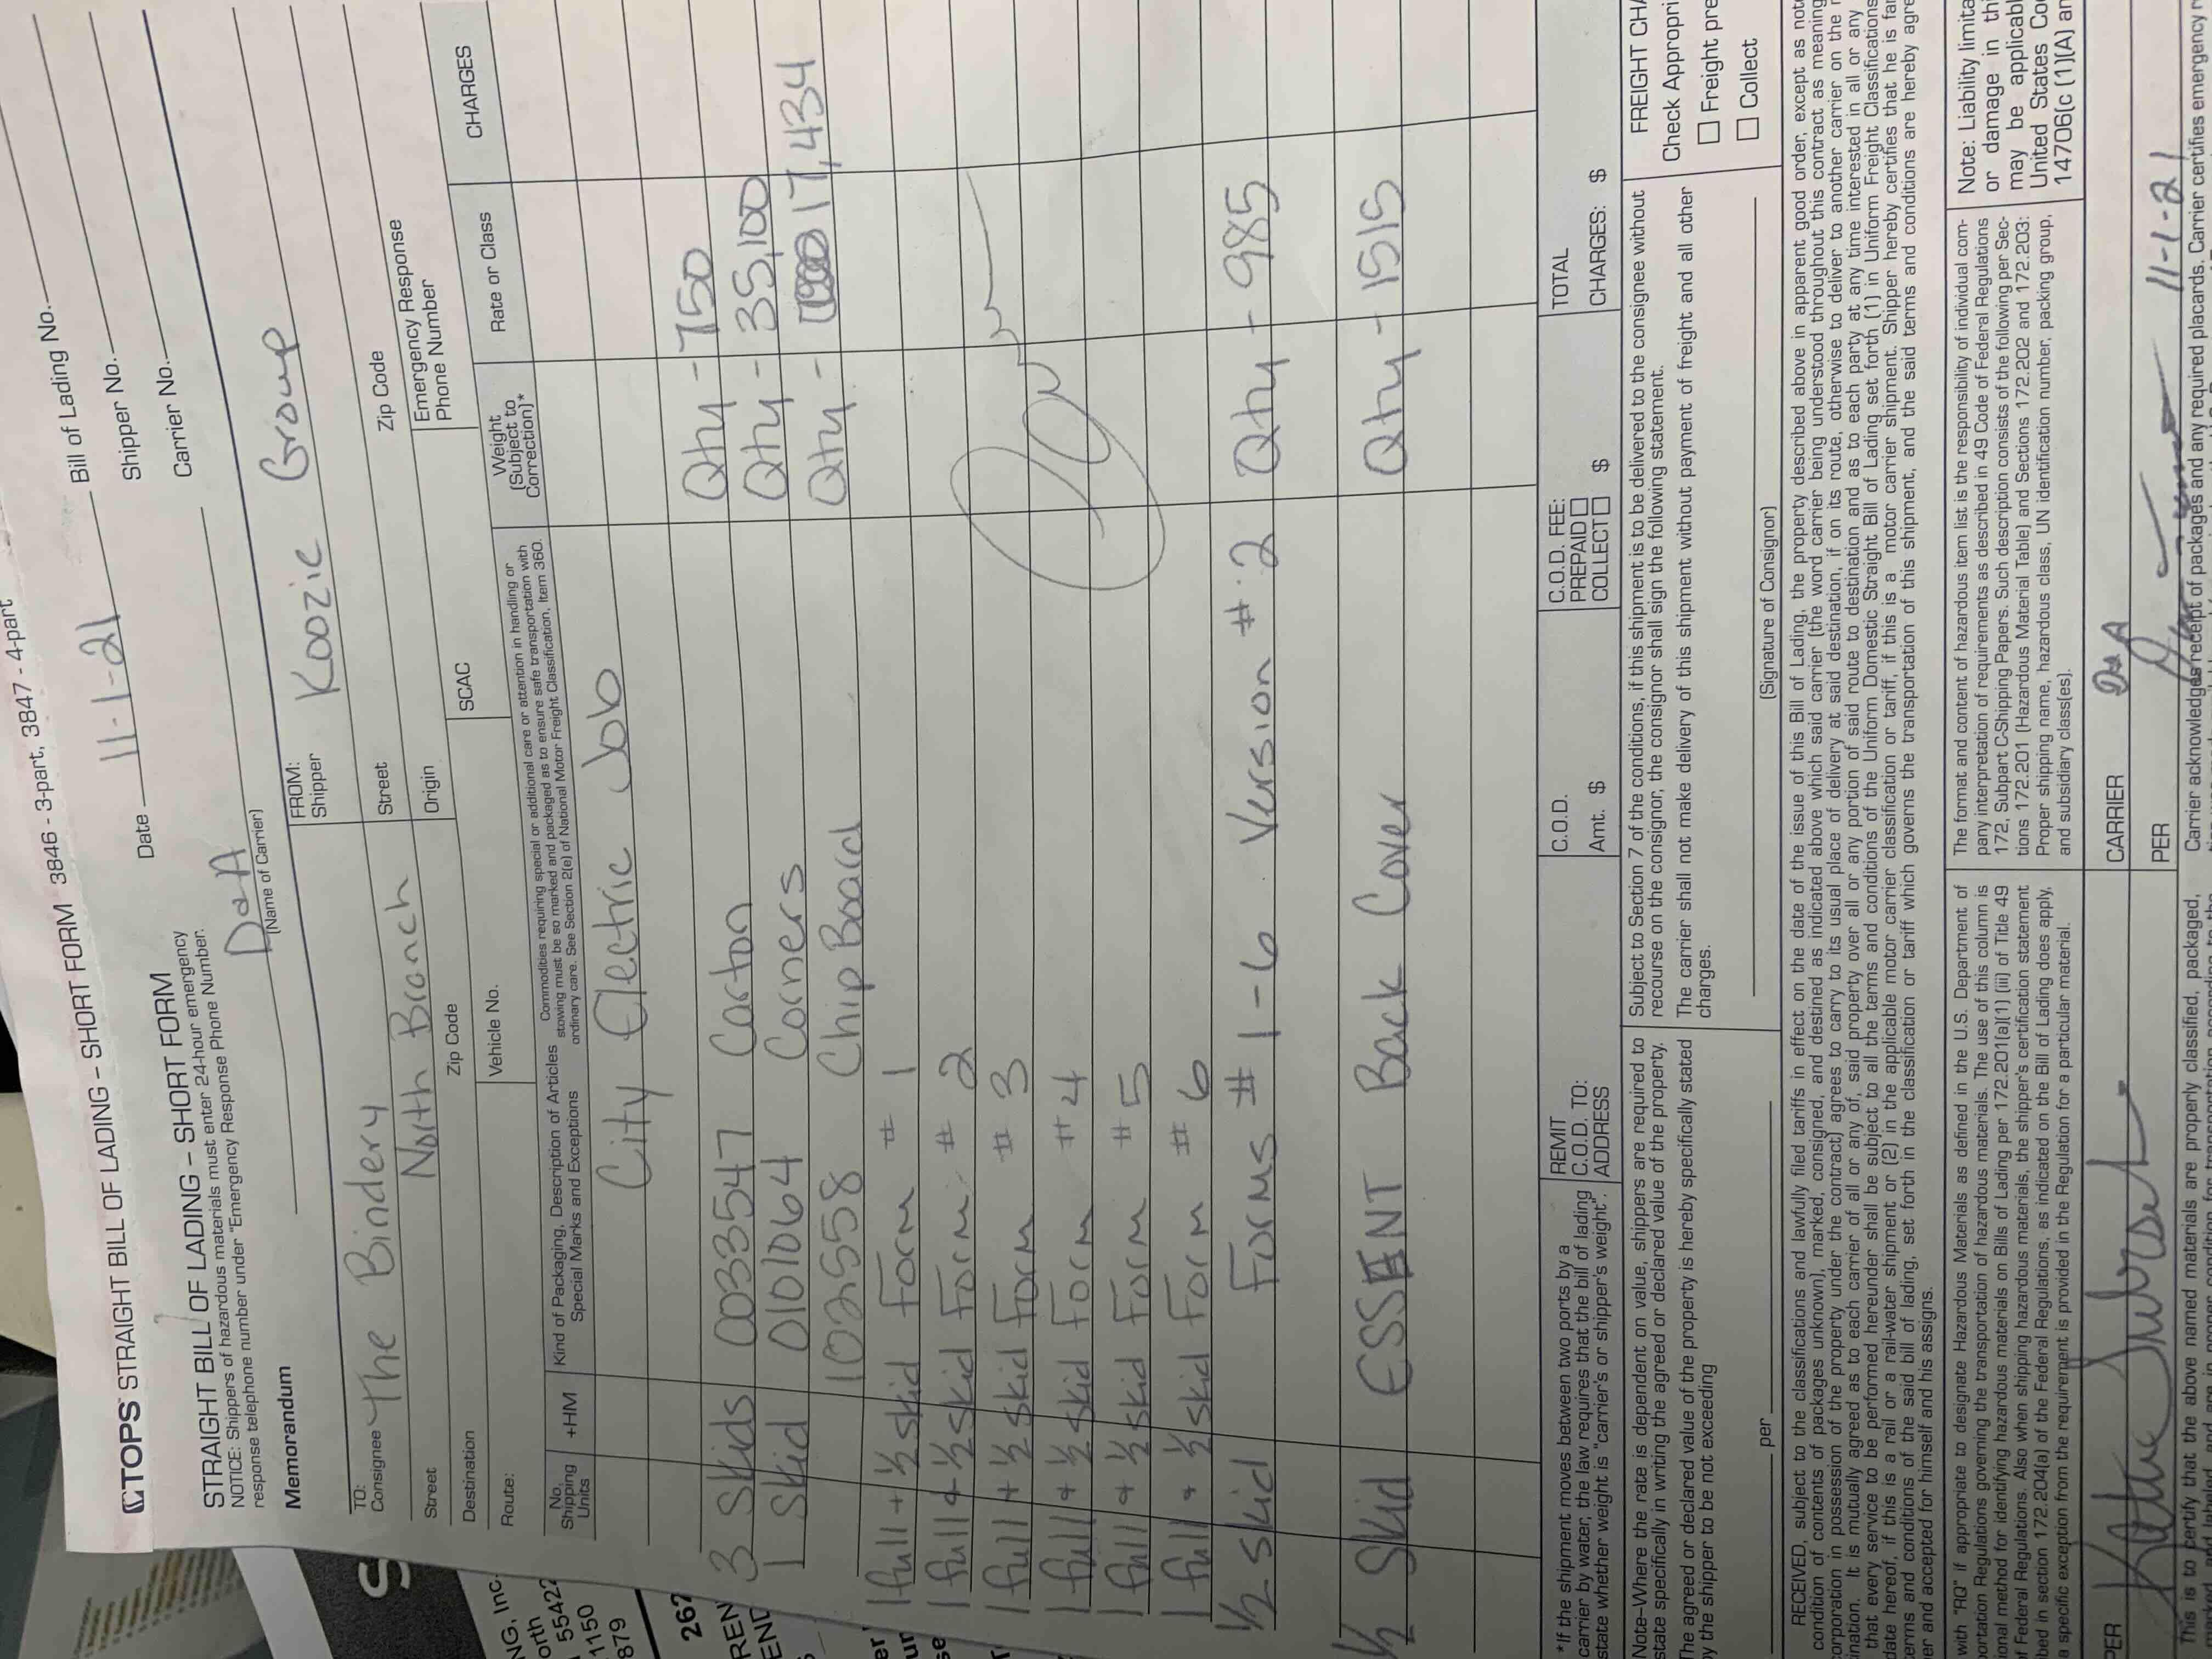 TOPS STRAIGHT BILL OF LADING – SHORT FORM 3846 - 3-part, 3847 - 4-part
STRAIGHT BILL OF LADING – SHORT FORM
NOTICE: Shippers of hazardous materials must enter 24-hour emergency
response telephone number under "Emergency Response Phone Number.
Date 11-1-21
Bill of Lading No.
Shipper No.
Carrier No.
Memorandum
D&A
(Name of Carrier)
TO:
Consignee The Bindery
Street North Branch
Destination
Zip Code
Route:
Vehicle No.
FROM:
Shipper Koozie Group
Street
Origin
Zip Code
SCAC
Emergency Response
Phone Number
No. Shipping Units
+HM
Kind of Packaging, Description of Articles
Special Marks and Exceptions
Commodities requiring special or additional care or attention in handling or
stowing must be so marked and packaged as to ensure safe transportation with
ordinary care. See Section 2(e) of National Motor Freight Classification, Item 360.
Weight
(Subject to
Correction)*
Rate or Class
CHARGES
City Electric Job
3 Skids 0033547 Carton Qty - 750
1 Skid 0101064 Corners Qty - 35,100
102558 Chip Board Qty - 17,434
1 full + 1/2 skid Form # 1
1 full + 1/2 skid Form # 2
1 full + 1/2 skid Form # 3
1 full + 1/2 skid Form # 4
1 full + 1/2 skid Form # 5
1 full + 1/2 skid Form # 6
1/2 skid Forms # 1-6 Version # 2 Qty - 985
1/2 Skid ESSENT Back Cover Qty - 1515
*If the shipment moves between two ports by a
carrier by water, the law requires that the bill of lading
state whether weight is "carrier's or shipper's weight".
REMIT
C.O.D. TO:
ADDRESS
C.O.D.
Amt. $
C.O.D. FEE:
PREPAID
COLLECT $
TOTAL
CHARGES: $
Note–Where the rate is dependent on value, shippers are required to
state specifically in writing the agreed or declared value of the property.
The agreed or declared value of the property is hereby specifically stated
by the shipper to be not exceeding
per
Subject to Section 7 of the conditions, if this shipment is to be delivered to the consignee without
recourse on the consignor, the consignor shall sign the following statement.
The carrier shall not make delivery of this shipment without payment of freight and all other
charges.
(Signature of Consignor)
FREIGHT CHA
Check Appropri
Freight pre
Collect
RECEIVED, subject to the classifications and lawfully filed tariffs in effect on the date of the issue of this Bill of Lading, the property described above in apparent good order, except as not
condition of contents of packages unknown), marked, consigned, and destined as indicated above which said carrier (the word carrier being understood throughout this contract as meaning
orporation in possession of the property under the contract) agrees to carry to its usual place of delivery at said destination, if on its route, otherwise to deliver to another carrier on the r
ination. It is mutually agreed as to each carrier of all or any of, said property over all or any portion of said route to destination and as to each party at any time interested in all or any
that every service to be performed hereunder shall be subject to all the terms and conditions of the Uniform Domestic Straight Bill of Lading set forth (1) in Uniform Freight Classifications
date hereof, if this is a rail or a rail-water shipment or (2) in the applicable motor carrier classification or tariff, if this is a motor carrier shipment. Shipper hereby certifies that he is fa
erms and conditions of the said bill of lading, set forth in the classification or tariff which governs the transportation of this shipment, and the said terms and conditions are hereby agre
er and accepted for himself and his assigns.
with "RQ" if appropriate to designate Hazardous Materials as defined in the U.S. Department of
portation Regulations governing the transportation of hazardous materials. The use of this column is
ional method for identifying hazardous materials on Bills of Lading per 172.201(a)(1) (iii) of Title 49
f Federal Regulations. Also when shipping hazardous materials, the shipper's certification statement
bed in section 172.204(a) of the Federal Regulations, as indicated on the Bill of Lading does apply,
a specific exception from the requirement is provided in the Regulation for a particular material.
The format and content of hazardous item list is the responsibility of individual com-
pany interpretation of requirements as described in 49 Code of Federal Regulations
172, Subpart C-Shipping Papers. Such description consists of the following per Sec-
tions 172.201 (Hazardous Material Table) and Sections 172.202 and 172.203:
Proper shipping name, hazardous class, UN identification number, packing group,
and subsidiary class(es).
Note: Liability limita
or damage in thi
may be applicabl
United States Co
14706(c (1)(A) an
CARRIER D&A
PER
PER 11-1-21
This is to certify that the above named materials are properly classified, packaged,
Carrier acknowledges receipt of packages and any required placards. Carrier certifies emergency r
NG, Inc.
orth
5542
1150
879
267
REN
END